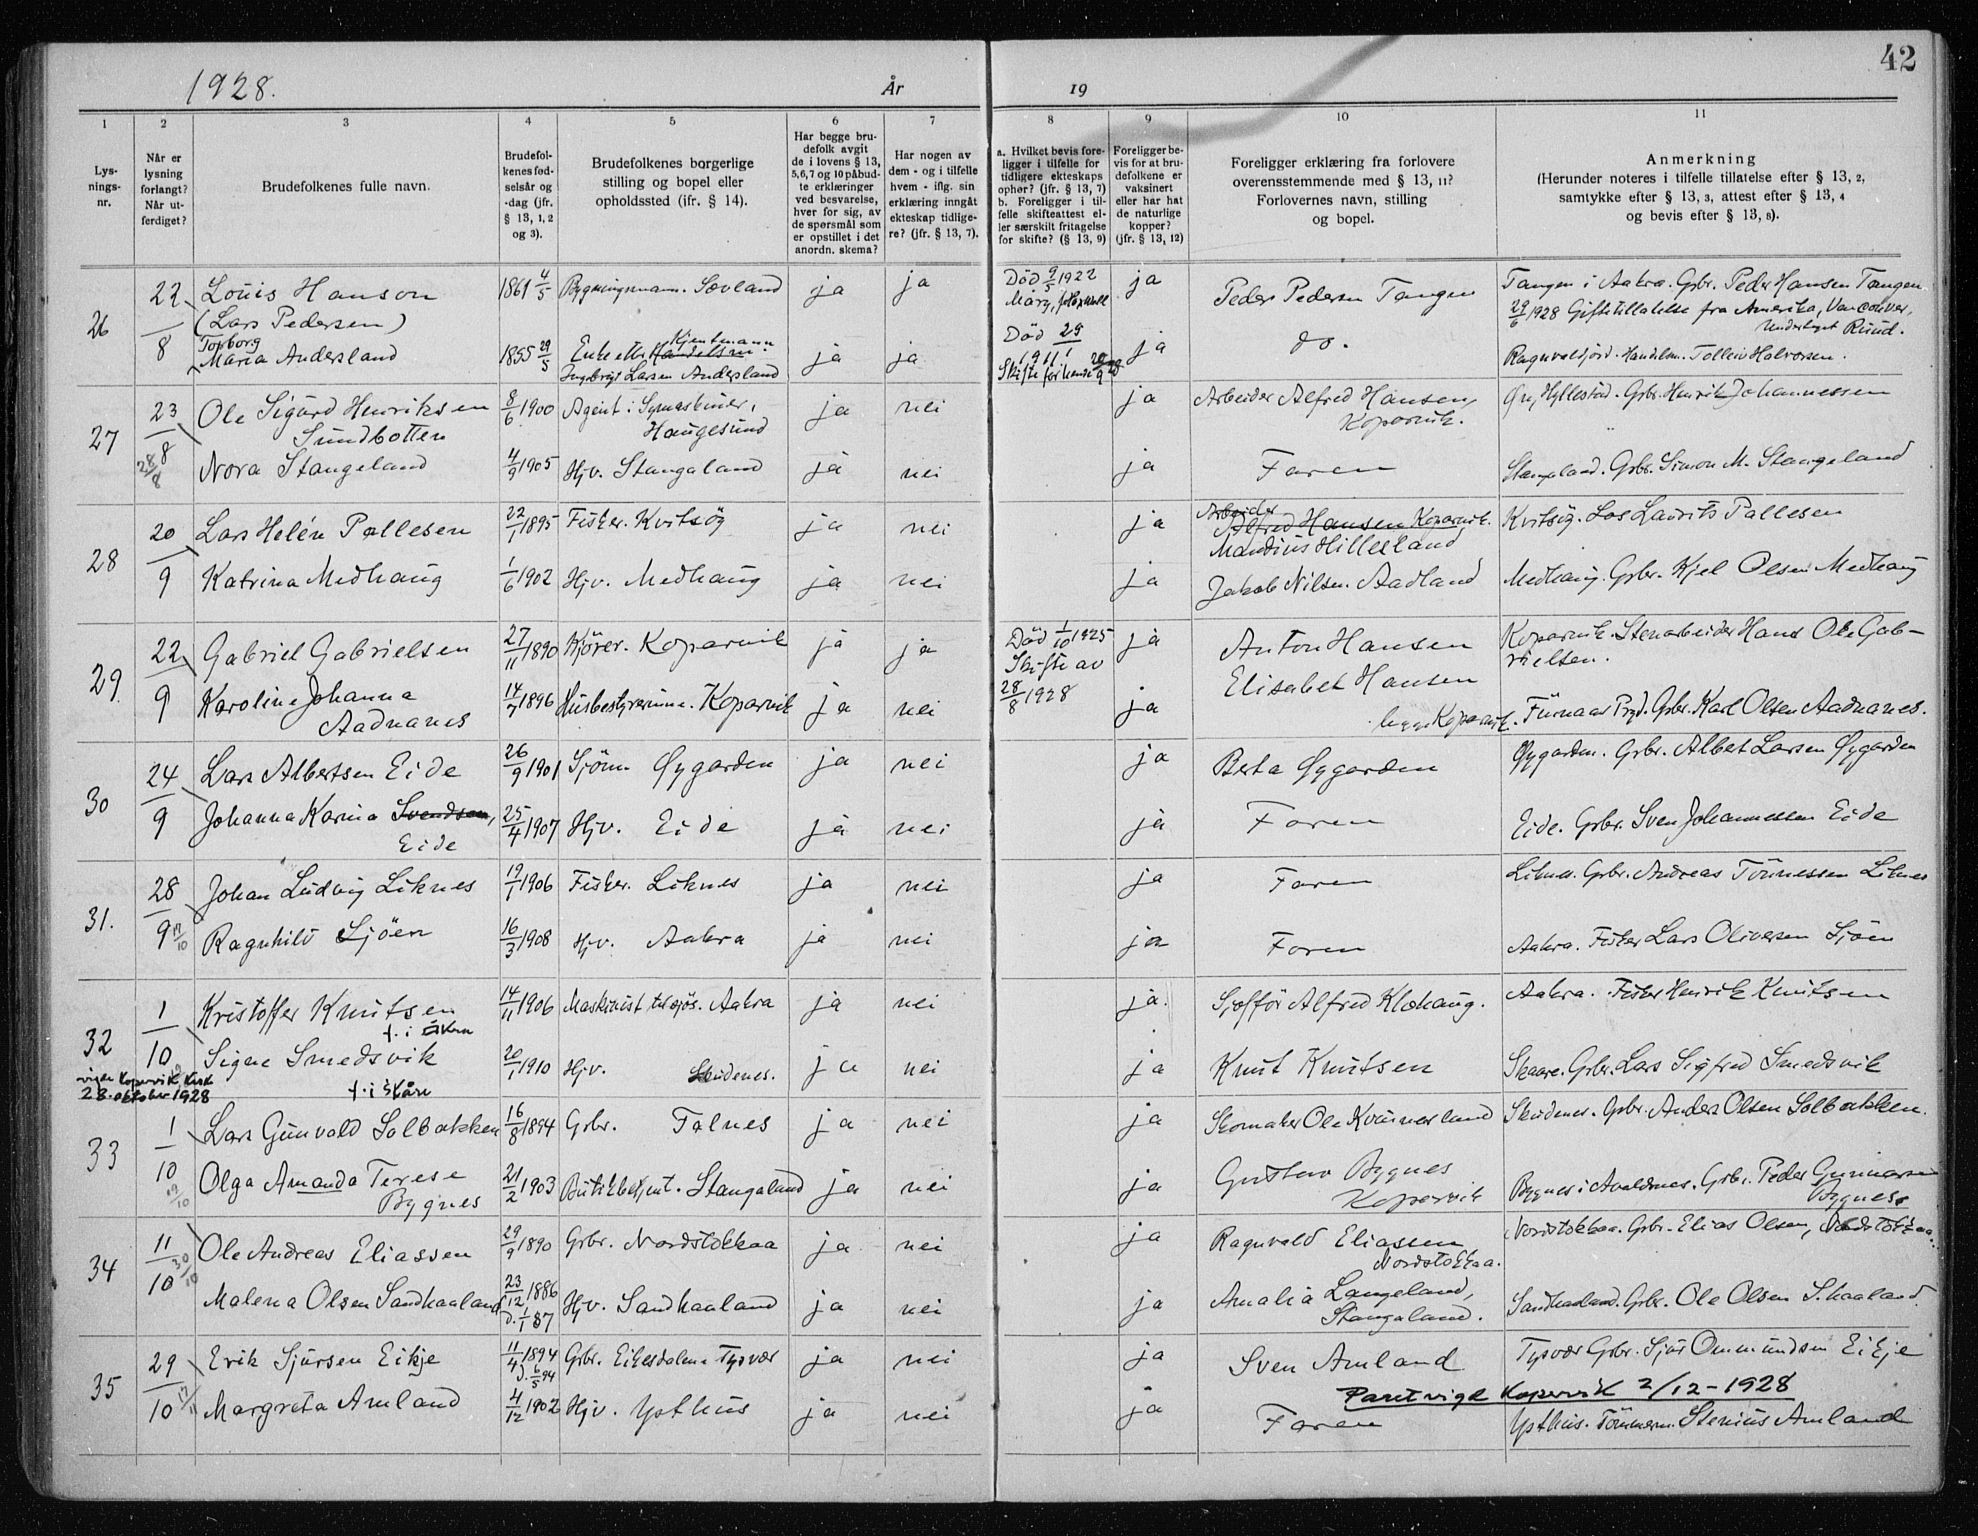 42
1928. År 19
1 2 3 4 5 6 7 8 9 10 11
Lys-
nings-
nr.
Når er
lysning
forlangt?
Når ut-
ferdiget?
Brudefolkenes fulle navn.
Brudefol-
kenes fød-
selsår og
-dag (jfr.
§ 13, 1, 2
og 3).
Brudefolkenes borgerlige
stilling og bopel eller
opholdssted (ifr. § 14).
Har begge bru-
defolk avgit
de i lovens § 13,
5, 6, 7 og 10 påbud-
te erklæringer
ved besvarelse,
hver for sig, av
de spørsmål som
er opstillet i det
anordn. skema?
Har nogen av
dem - og i tilfelle
hvem - iflg. sin
erklæring inngåt
ekteskap tidlige-
re? (jfr. § 13, 7).
a. Hvilket bevis fore-
ligger i tilfelle for
tidligere ekteskaps
ophør? (jfr. § 13, 7)
b. Foreligger i til-
felle skifteattest el-
ler særskilt fritagelse
for skifte? (§ 13, 9)
Foreligger be-
vis for at bru-
defolkene er
vaksinert
eller har hat
de naturlige
kopper?
(jfr. § 13, 12)
Foreligger erklæring fra forlovere
overensstemmende med § 13, 11?
Forlovernes navn, stilling
og bopel.
Anmerkning
(Herunder noteres i tilfelle tillatelse efter § 13, 2,
samtykke efter § 13, 3, attest efter § 13, 4
og bevis efter § 13, 8).
26 22/8 Louis Hanson 1861 4/5 Bygningsmann. Sævland ja ja Død 9/5 1922 ja Peder Pedersen Tangen Tangen i Aakra. Grbr. Peder Hansen Tangen
(Lars Pedersen) 29/6 1928 Giftetillatelse fra Amerika, Vancouver,
Torborg Kjentmann Død 29
Maria Andersland 1855 29/5 Enke etter Handelsm. ja ja 1911 ja do. Ragnvaldsjord. Handelsm. Tollein Halvorsen.
Ingebrigt Larsen Andersland
27 23/8 Ole Sigurd Henriksen 8/6 1900 Agent i Symaskiner, ja nei ja Arbeider Alfred Hansen, Hyllestad. Grbr. Henrik Johannessen
Sundbotten Haugesund Kopervik.
28/8 Nora Stangeland 4/9 1905 Hjv. Stangaland ja nei ja Faren Stangeland. Grbr. Simon M. Stangeland
28 20/9 Lars Helén Pallesen 22/1 1895 Fisker. Kvitsøy ja nei ja Arbeider Alfred Hansen Kopervik. Kvitsøy. Los Laurits Pallesen
Mandius Hillesland
Katrina Medhaug 1/6 1902 Hjv. Medhaug ja nei ja Jakob Nilsen. Aadland Medhaug. Grbr. Kjel Olsen Medhaug
29 22/9 Gabriel Gabrielsen 27/11 1890 Kjører. Kopervik ja ja Død 1/10 1925 ja Anton Hansen Kopervik. Stenarbeider Hans Ole Gab-
Skifte av rielsen.
Karoline Johanna 14/7 1896 Husbestyrerinne. Kopervik ja nei 28/8 1928 ja Elisabet Hansen
Aadnanes begge Kopervik. Finnaas Prgd. Grbr. Karl Olsen Aadnanes.
30 24/9 Lars Albertsen Eide 26/9 1901 Sjöm Øygarden ja nei ja Berta Øygarden Øygarden. Grbr. Albert Larsen Øygarden
Johanna Karina Svendsen, 25/4 1907 Hjv. Eide ja nei ja Faren Eide. Grbr. Sven Johannessen Eide
Eide
31. 28/9 Johan Ludvig Liknes 19/1 1906 Fisker. Liknes ja nei ja Faren Liknes. Grbr. Andreas Tönnessen Liknes
Ragnhild Sjöen 16/3 1908 Hjv. Aakra ja nei ja Faren Aakra. Fisker Lars Oliversen Sjöen
32 1/10 Kristoffer Knutsen 14/11 1906 Maskinist tilsjøs. Aakra ja nei ja. Sjofför Alfred Klohaug. Aakra. Fisker Henrik Knutsen
f. i Åkra
Signe Smedsvik 20/1 1910 Hjv. Skudenes. ja nei ja Knut Knutsen Skaare. Grbr. Lars Sigfred Smedsvik
f. i Skåre
vigde Kopervik Kirk
28. oktober 1928
33 1/10 Lars Gunvald Solbakken 16/8 1894 Grbr. Falnes ja nei ja Skomaker Ole Kvinnesland Skudenes. Grbr. Anders Olsen Solbakken.
Olga Amanda Terese 21/2 1903 Butikkbetjent. Stangaland ja nei ja Gustav Bygnes Bygnes i Avaldsnes. Grbr. Peder Gunnarsen
Bygnes Kopervik Bygnes
34 11/10 30/10 Ole Andreas Eliassen 29/9 1890 Grbr. Nordstokkaa ja nei ja Ragnvald Eliassen Nordstokkaa. Grbr. Elias Olsen, Nordstokkaa.
Nordstokkaa.
Malena Olsen Sandhaaland 23/12 1886 Hjv. Sandhaaland ja nei ja Amalia Langeland, Sandhaaland. Grbr. Ole Olsen S.haaland.
D. 1/1 87 Stangaland.
35 29/10 Erik Sjursen Eikje 11/4 1894 Grbr. Eikesdalen Tysvær ja nei ja Sven Amland Tysvær Grbr. Sjur Ommundsen Eikje
D. 6/5 94
Paret vigd Kopervik 2/12-1928
Margreta Amland 4/12 1902 Hjv. Ysthus ja nei ja Faren Ysthus. Tömmerm. Stenius Amland